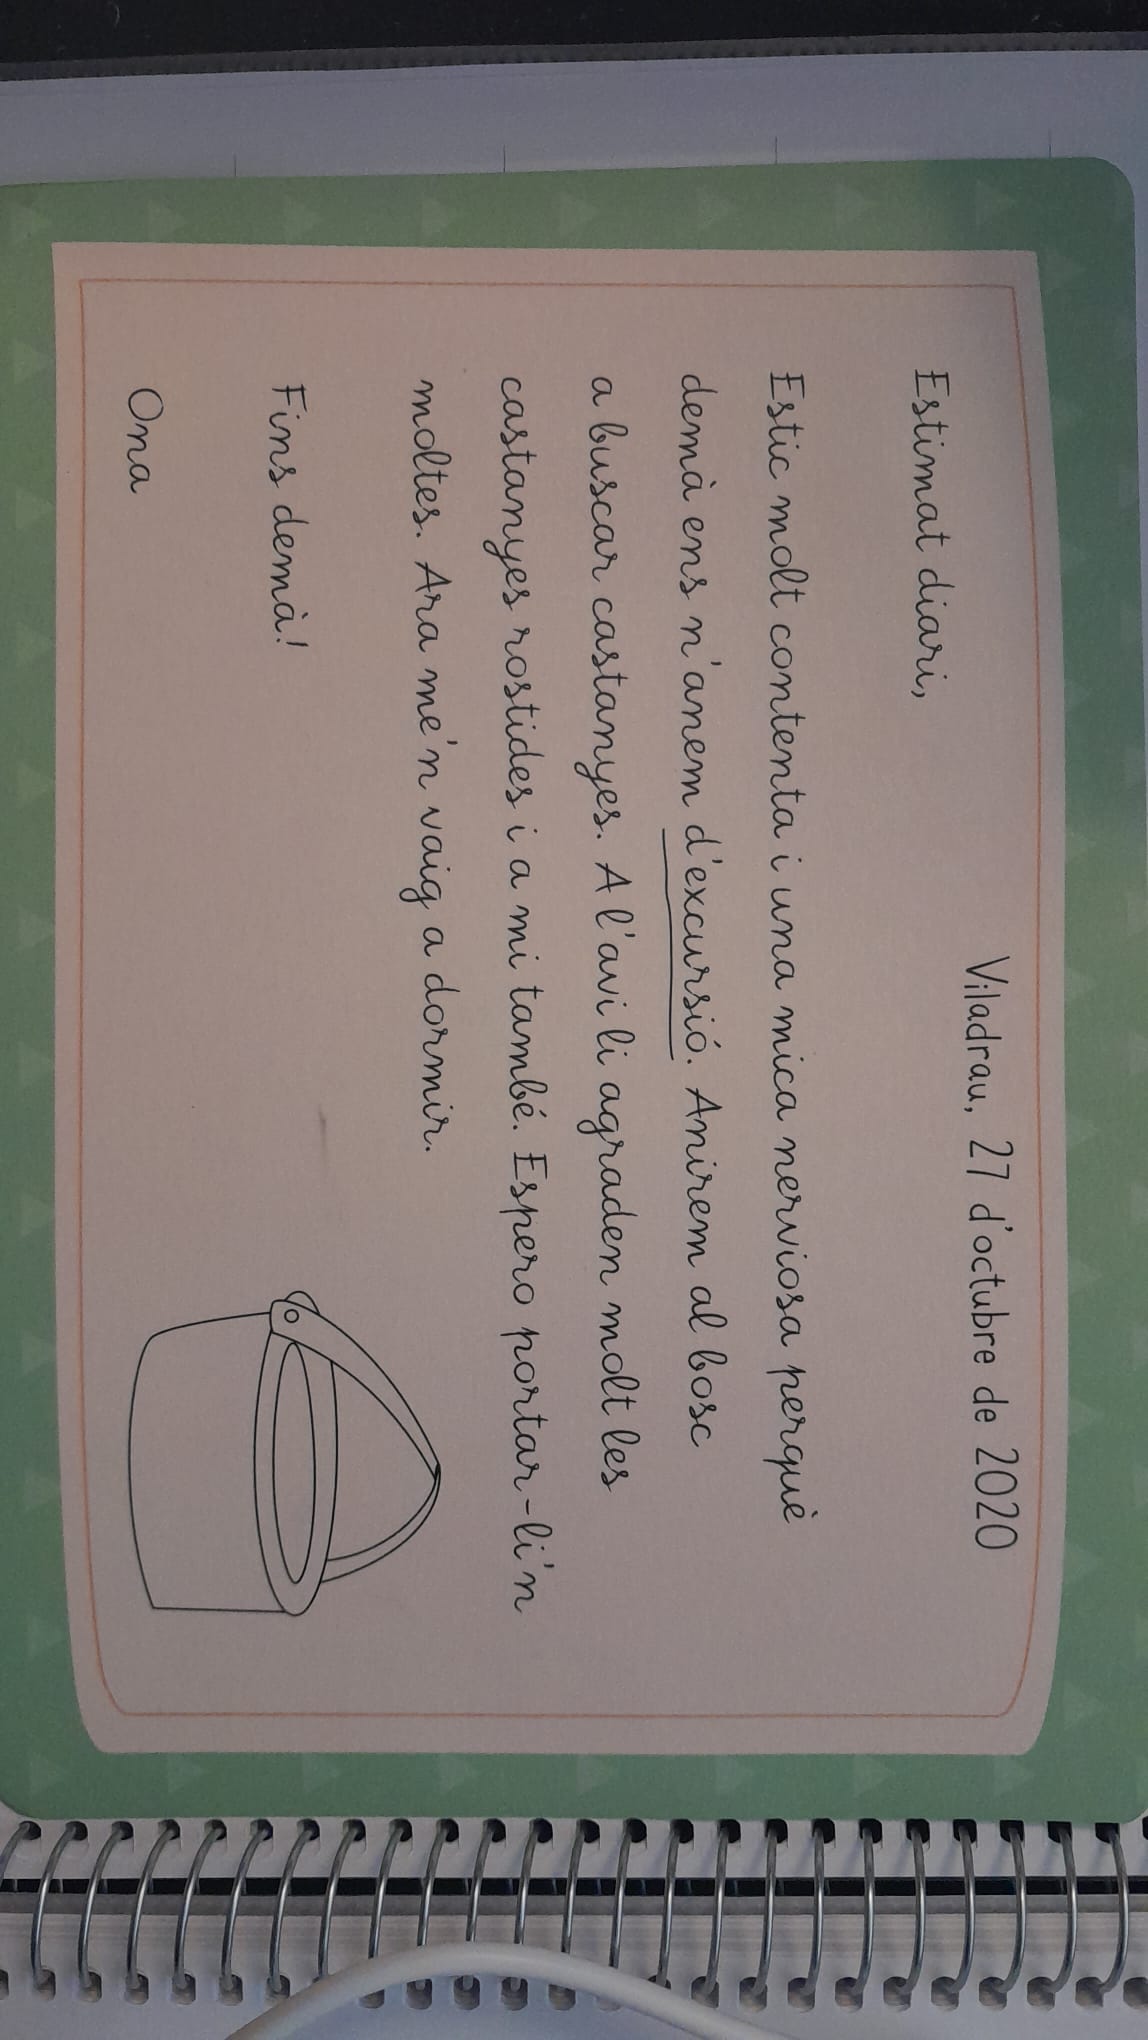 Viladrau, 27 d'octubre de 2020
Estimat diari,
Estic molt contenta i una mica nerviosa perquè
demà ens n'anem d'excursió. Anirem al bosc
a buscar castanyes. A l'avi li agraden molt les
castanyes rostides i a mi també. Espero portar-li'n
moltes. Ara me'n vaig a dormir.
Fins demà!
Ona